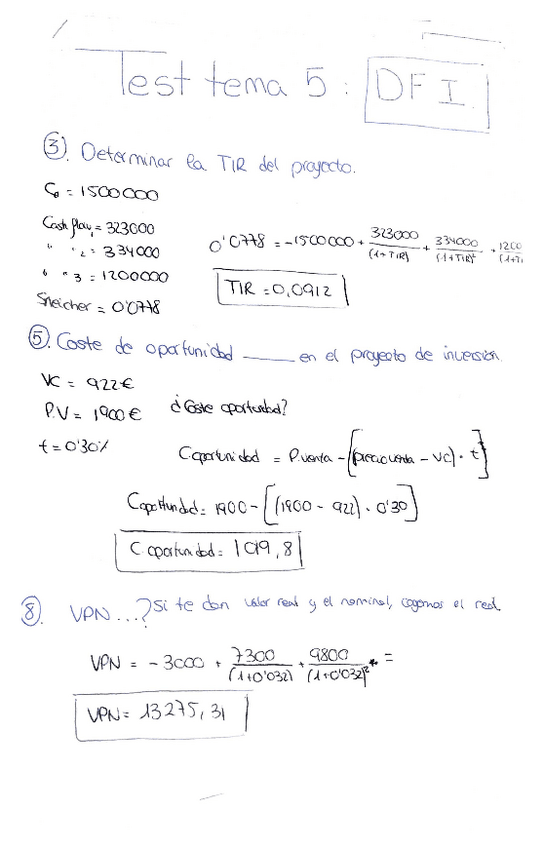 Test tema 5: DFI
③. Determinar la TIR del proyecto.
C₀ = 1500000
Cash flow₁ = 323000
" " ₂ = 334000
" " 3 = 1200000
0'0778 = -1500000 + 323000/(1+TIR) + 334000/(1+TIR)² + 1200
TIR = 0,0912
= 0'0778
⑤. Coste de oportunidad ____ en el proyecto de inversión.
VC = 922€
P.V = 1900€
¿Coste oportunidad?
t = 0'30%
C.oportunidad = P.venta - [(precio venta - VC) · t]
C.oportunidad = 1900 - [(1900 - 922) · 0'30]
C oportunidad = 1019,8
⑧. VPN...? Si te dan valor real y el nominal, cogemos el real.
VPN = -3000 + 7300/(1+0'032) + 9800/(1+0'032)² =
VPN = 13275,31